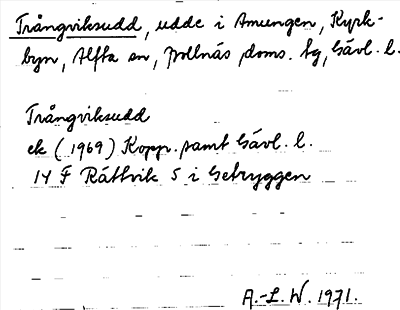 Trångviksudd, udde i Amungen, Kyrk-
byn, Alfta sn, Bollnäs doms. tg, Gävl. l.
Trångviksudd
ek (1969) Kopp. samt Gävl. l.
14 F Rättvik S i Getryggen
A.-L. W. 1971.